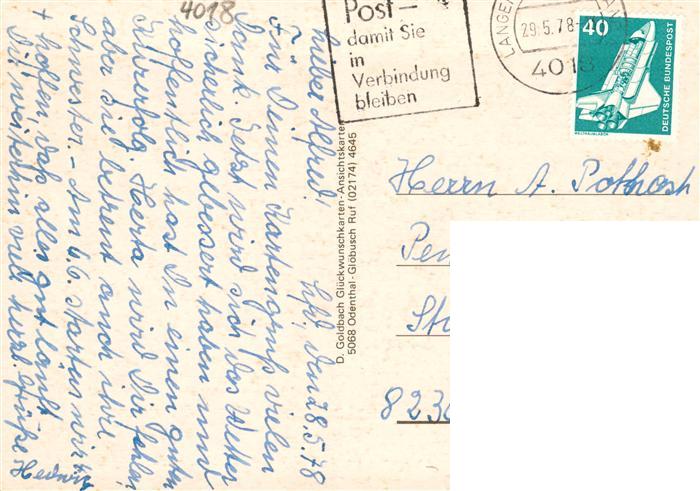 4018
Post-
damit Sie
in
Verbindung
bleiben
29.5.78
4018
40
DEUTSCHE BUNDESPOST
WELTRAUMLABOR
Lieber Alfred!
Lgfd. den 28.5.78
Für Deinen Kartengruß vielen
Dank. Jetzt wird sich das Wetter
sicherlich gebessert haben und
hoffentlich hast Du einen guten
Kurerfolg. Herta wird Dir fehlen,
aber sie betreut auch ihre
Schwester. - Am 6.6. starten wir
+ hoffen, daß alles gut läuft.
Dir weiterhin viele herzl. Grüße
Hedwig
D. Goldbach Glückwunschkarten-Ansichtskarten
5068 Odenthal-Globusch Ruf (02174) 4645
Herrn A. Pothast
Pen
St
823